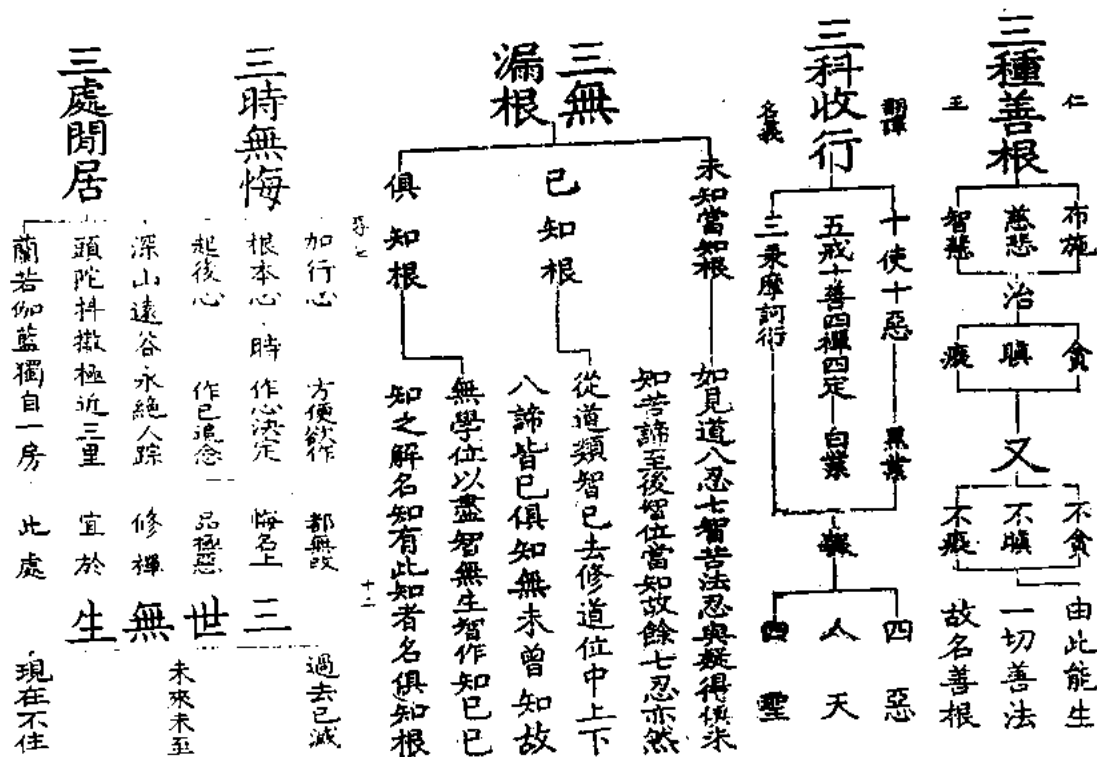 三種善根
仁
王
布施
慈悲
智慧
治
貪
瞋
癡
又
不貪
不瞋
不癡
由此能生
一切善法
故名善根
三科收行
翻譯
名義
十使十惡
黑業
五戒十善四禪四定
白業
三乘摩訶衍
四惡
人天
四聖
三無
漏根
未知當知根
如見道八忍七智苦法忍與疑得俱未
知苦諦至後智位當知故餘七忍亦然
已知根
從道類智已去修道位中上下
八諦皆已俱知無未曾知故
俱知根
無學位以盡智無生智作知已已
知之解名知有此知者名俱知根
十二
三時無悔
加行心
根本心
起後心
時
方便欲作
作心決定
作已追念
都無改
悔名上
品極惡
三處閒居
深山遠谷永絕人踪
頭陀抖擻極近三里
蘭若伽藍獨自一房
修禪
宜於
此處
三世無生
過去已滅
未來未至
現在不住